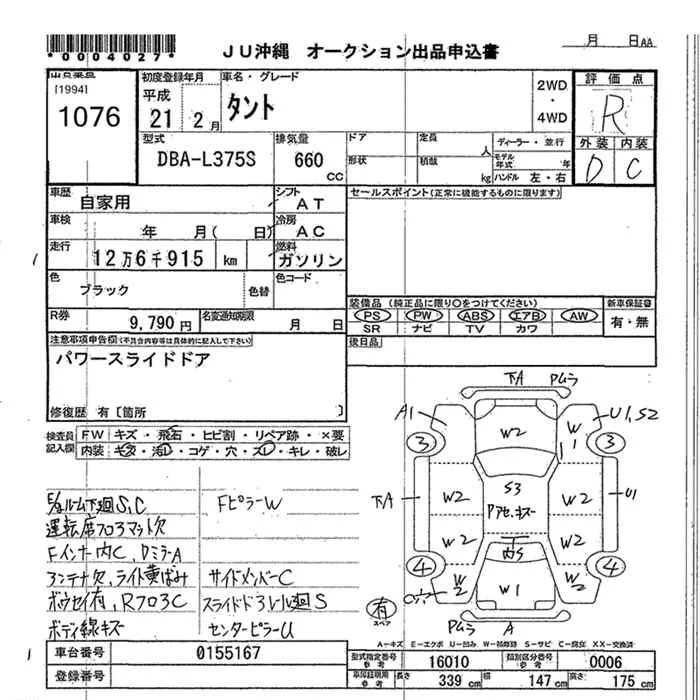 *0004027*
JU沖縄 オークション出品申込書
月 日AA
[1994]
1076
初度登録年月
平成
21 2月
車名・グレード
タント
2WD
・
4WD
評価点
R
外装 内装
D C
型式
DBA-L375S
排気量
660
CC
ドア
形状
定員
人
積載
kg
ディーラー・並行
モデル年式 年
ハンドル 左・右
車歴
自家用
シフト
AT
車検
年 月( 日)
冷房
AC
走行
12万6千915 km
燃料
ガソリン
色
ブラック
色替
色コード
R券
9,790円
名変通知期限
月 日
セールスポイント(正常に機能するものに限ります)
装備品(純正品に限り○をつけてください)
PS PW ABS エアB AW
SR ナビ TV カワ
新車保証書
有・無
後日品
注意事項申告欄(不具合内容等は具体的に記入して下さい)
パワースライドドア
修復歴 有〔箇所 〕
検査員記入欄
FW キズ・飛石・ヒビ割・リペア跡・×要
内装 キズ・汚レ・コゲ・穴・スレ・キレ・破レ
E/gルーム下廻S,C
FピラーW
運転席フロアマット欠
Fインナー内C, DミラーA
アンテナ欠, ライト黄ばみ
サイドメンバーC
ボウセイ有, RフロアC
スライドドアレール廻S
ボディ線キズ
センターピラーU
下A Pムラ
A1
U1,S2
W2
W1
3
3
下A
W2
S3
Pアセ,キズ
W2
U1
W2
内S
W2
4
4
W2
W1
W2
有
スペア
Pムラ A
A-キズ E-エクボ U-凹み W-補修跡 S-サビ C-腐食 XX-交換済
車台番号
0155167
登録番号
型式指定番号
参考
16010
類別区分番号
参考
0006
車庫証明用
参考
長さ
339 cm
幅
147 cm
高さ
175 cm